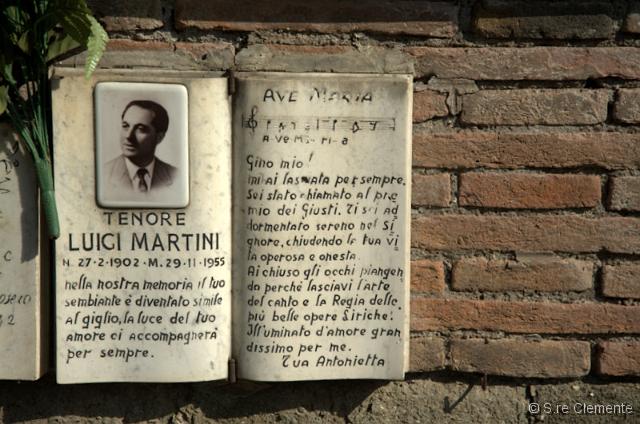 TENORE
LUIGI MARTINI
N. 27-2-1902 - M. 29-11-1955
nella nostra memoria il tuo
sembiante è diventato simile
al giglio, la luce del tuo
amore ci accompagnerà
per sempre.
AVE MARIA
A-VE M
Gino mio!
mi ai lasciata per sempre.
Sei stato chiamato al pre
mio dei Giusti. Ti sei ad
dormentato sereno nel Si
gnore, chiudendo la tua vi
ta operosa e onesta.
Ai chiuso gli occhi piangen
do perché lasciavi l'arte
del canto e la Regia delle
più belle opere Liriche.
Illuminato d'amore gran
dissimo per me.
Tua Antonietta
© S.re Clemente